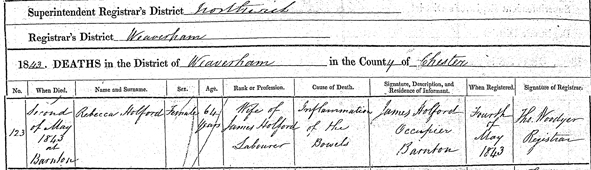 Superintendent Registrar's District Northwich
Registrar's District Weaverham
1843. DEATHS in the District of Weaverham in the County of Chester
No. When Died. Name and Surname. Sex. Age. Rank or Profession. Cause of Death. Signature, Description, and Residence of Informant. When Registered. Signature of Registrar.
123 Second of May 1843 at Barnton Rebecca Holford Female 64 years Wife of James Holford Labourer Inflammation of the Bowels James Holford Occupier Barnton Fourth of May 1843 Thos. Woodyer Registrar